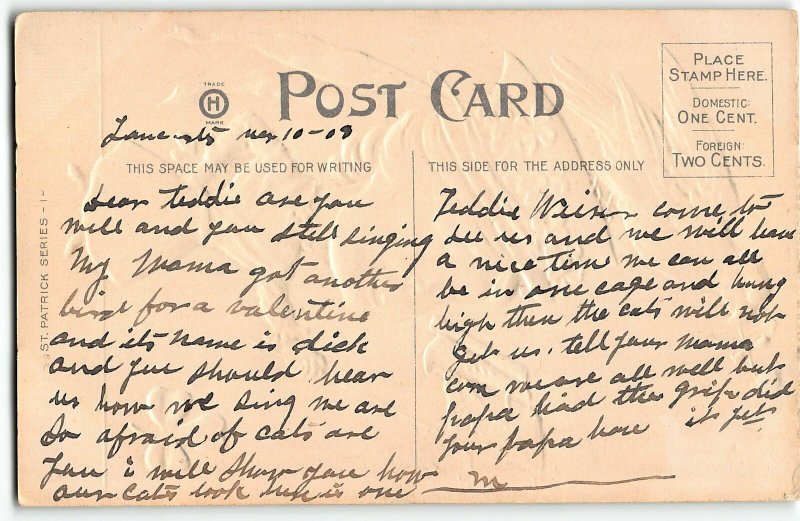 TRADE
H
MARK
POST CARD
PLACE
STAMP HERE.
DOMESTIC:
ONE CENT.
FOREIGN:
TWO CENTS.
10-09
THIS SPACE MAY BE USED FOR WRITING
THIS SIDE FOR THE ADDRESS ONLY
ST. PATRICK SERIES - 1 -
Dear Teddie are you
well and you still singing
My Mama got another
bird for a valentine
and its name is dick
and you should hear
us how we sing we are
so afraid of cats are
you i will show you how
our cats look here is one
Teddie come to
see us and we will have
a nice time we can all
be in one cage and hung
high then the cats will not
get us. tell your mama
we are all well but
papa had the grip did
your papa have it yet
M